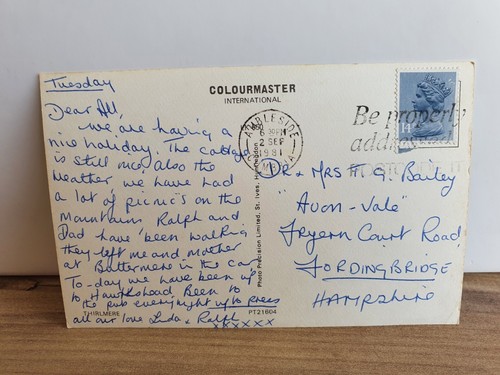 Tuesday
Dear All,
we are having a
nice holiday. The cottage
is still nice, also the
weather, we have had
a lot of picnic's on the
Mountain, Ralph and
Dad have been walking
they left me and mother
at Buttermere in the car,
To-day we have been up
to Hawkshead. Been to
the pub every night up to press
all our love Linda & Ralph
xxxxxx
THIRLMERE
PT21604
COLOURMASTER
INTERNATIONAL
Photo Precision Limited, St. Ives,
AMBLESIDE
2 SEP
1981
Be properly
Dr & Mrs H G. Bailey
"Avon-Vale"
Fryern Court Road,
FORDINGBRIDGE
HAMPSHIRE